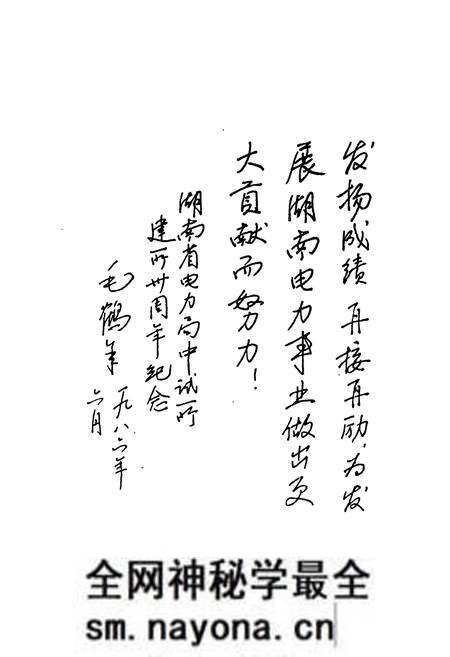 发扬成绩 再接再励，为发
展湖南电力事业做出更
大贡献而努力！
湖南省电力局中试所
建所卅周年纪念
毛鹤年
一九八六年
六月
全网神秘学最全
sm.nayona.cn